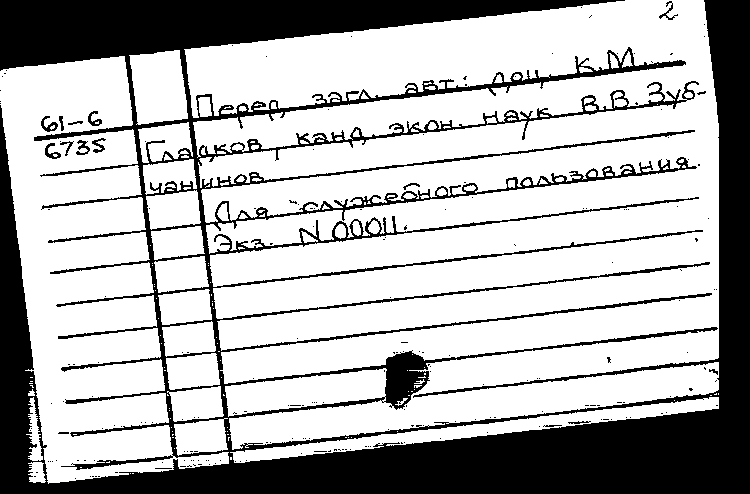 2
61-6
6735
Перед загл. авт.: доц. К.М.
Гладков, канд. экон. наук В.В. Зуб-
чанинов
Для служебного пользования.
Экз. N 00011.